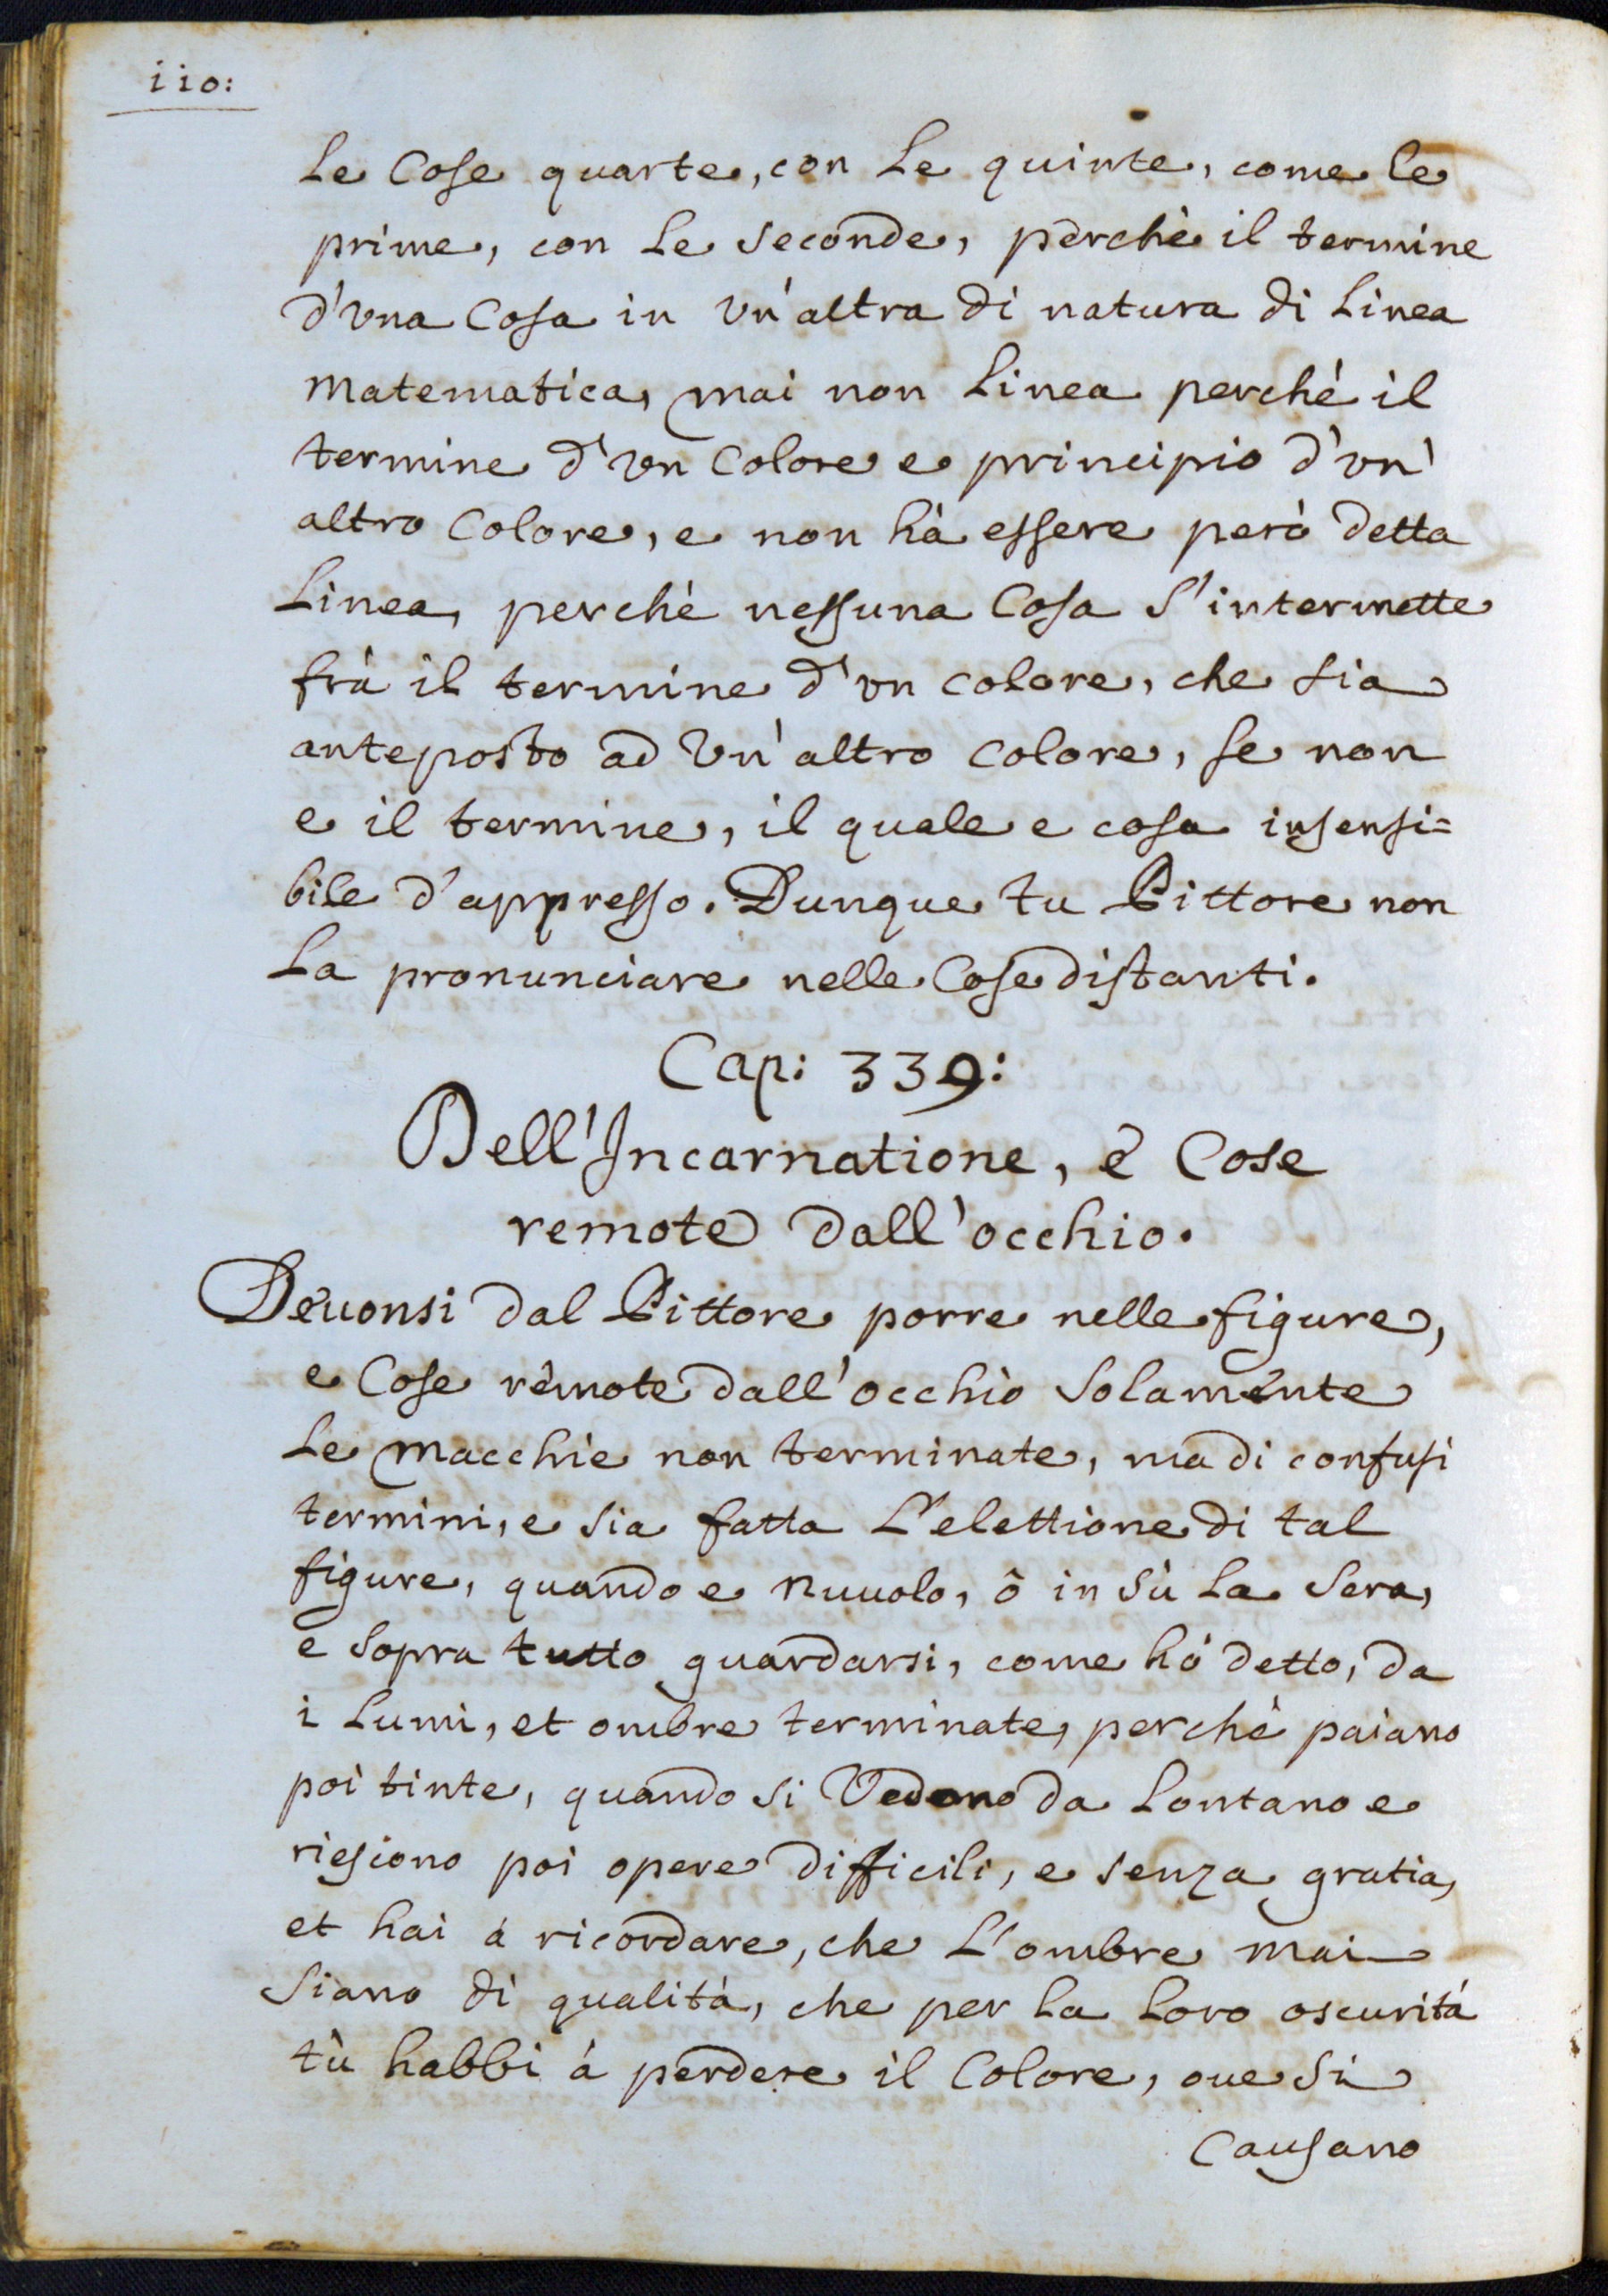 110:
Le Cose quarte, con Le quinte, come le
prime, con Le seconde, perchè il termine
d'vna Cosa in vn'altra di natura di Linea
Matematica, mai non Linea perchè il
termine d'vn Colore e principio d'vn'
altro Colore, e non hà essere però detta
Linea, perchè nessuna Cosa s'intermette
frà il termine d'vn colore, che sia
anteposto ad vn'altro colore, se non
e il termine, il quale e cosa insensi=
bile d'appresso. Dunque tu Pittore non
La pronunciare nelle Cose distanti.
Cap: 339:
Dell'Incarnatione, è Cose
remote dall'occhio.
Deuonsi dal Pittore porre nelle figure,
e Cose remote dall'occhio solamente
Le Macchie non terminate, ma di confusi
termini, e sia fatta L'elettione di tal
figure, quando e nuuolo, ô in sù La Sera,
e sopra tutto guardarsi, come hò detto, da
i Lumi, et ombre terminate, perchè paiano
poi tinte, quando si Vedono da Lontano e
riesciono poi opere difficili, e senza gratia,
et hai á ricordare, che L'ombre mai
siano di qualità, che per La Loro oscuritá
tù habbi á perdere il Colore, oue si
Causano